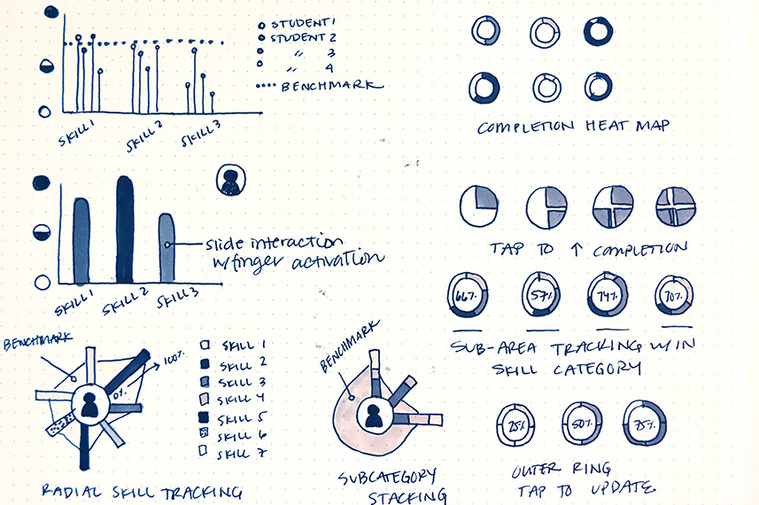 STUDENT 1
STUDENT 2
" 3
" 4
BENCHMARK
SKILL 1
SKILL 2
SKILL 3
COMPLETION HEAT MAP
slide interaction
w/finger activation
SKILL 1
SKILL 2
SKILL 3
TAP TO ↑ COMPLETION
66%
57%
74%
70%
SUB-AREA TRACKING W/IN
SKILL CATEGORY
BENCHMARK
100%
0%
SKILL 1
SKILL 2
SKILL 3
SKILL 4
SKILL 5
SKILL 6
SKILL 7
RADIAL SKILL TRACKING
BENCHMARK
SUBCATEGORY
STACKING
25%
50%
75%
OUTER RING
TAP TO UPDATE